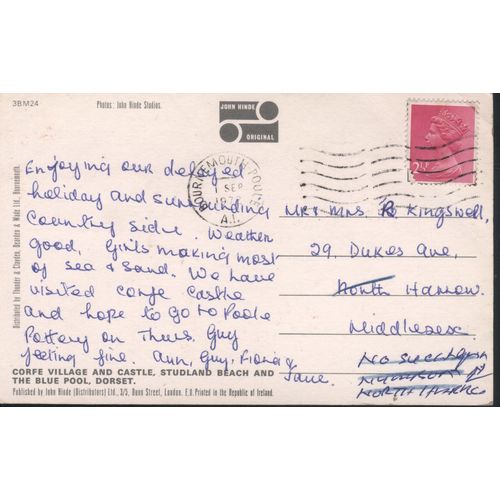 3BM24
Photos: John Hinde Studios.
JOHN HINDE
ORIGINAL
BOURNEMOUTH POOLE
SEP
A.
2½P
Enjoying our delayed
holiday and surrounding
country side. Weather
good, Girls making most
of sea & sand. We have
visited Corfe Castle
and hope to go to Poole
Pottery on Thurs. Guy
feeling fine. Ann, Guy, Fiona &
Jane.
Mr & Mrs. R Kingswell,
29, Dukes Ave,
North Harrow.
Middlesex
No such
North Harrow
CORFE VILLAGE AND CASTLE, STUDLAND BEACH AND
THE BLUE POOL, DORSET.
Published by John Hinde (Distributors) Ltd., Dunn Street, London, E.8. Printed in the Republic of Ireland.
Distributed by Thunder & Clayden, Dearden & Wade Ltd., Bournemouth.